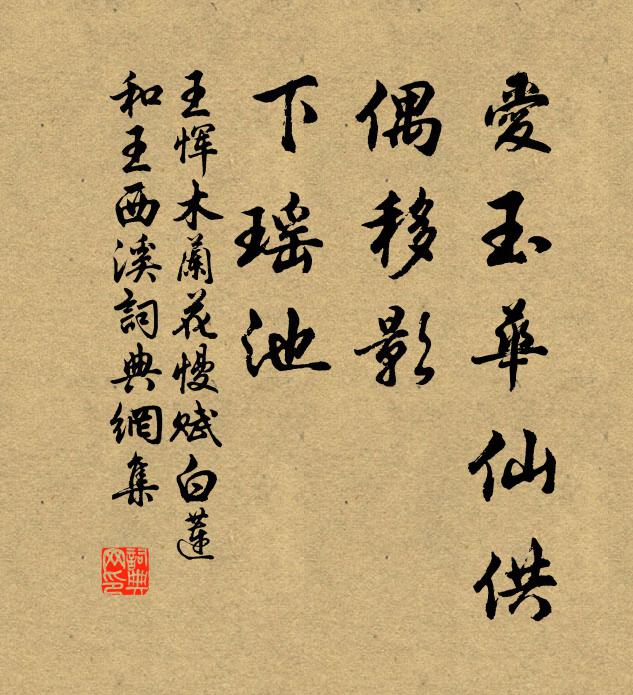 愛玉華仙供
偶移影
下瑤池
王惲木蘭花慢賦白蓮
和王西溪詞典網集
詞典網印